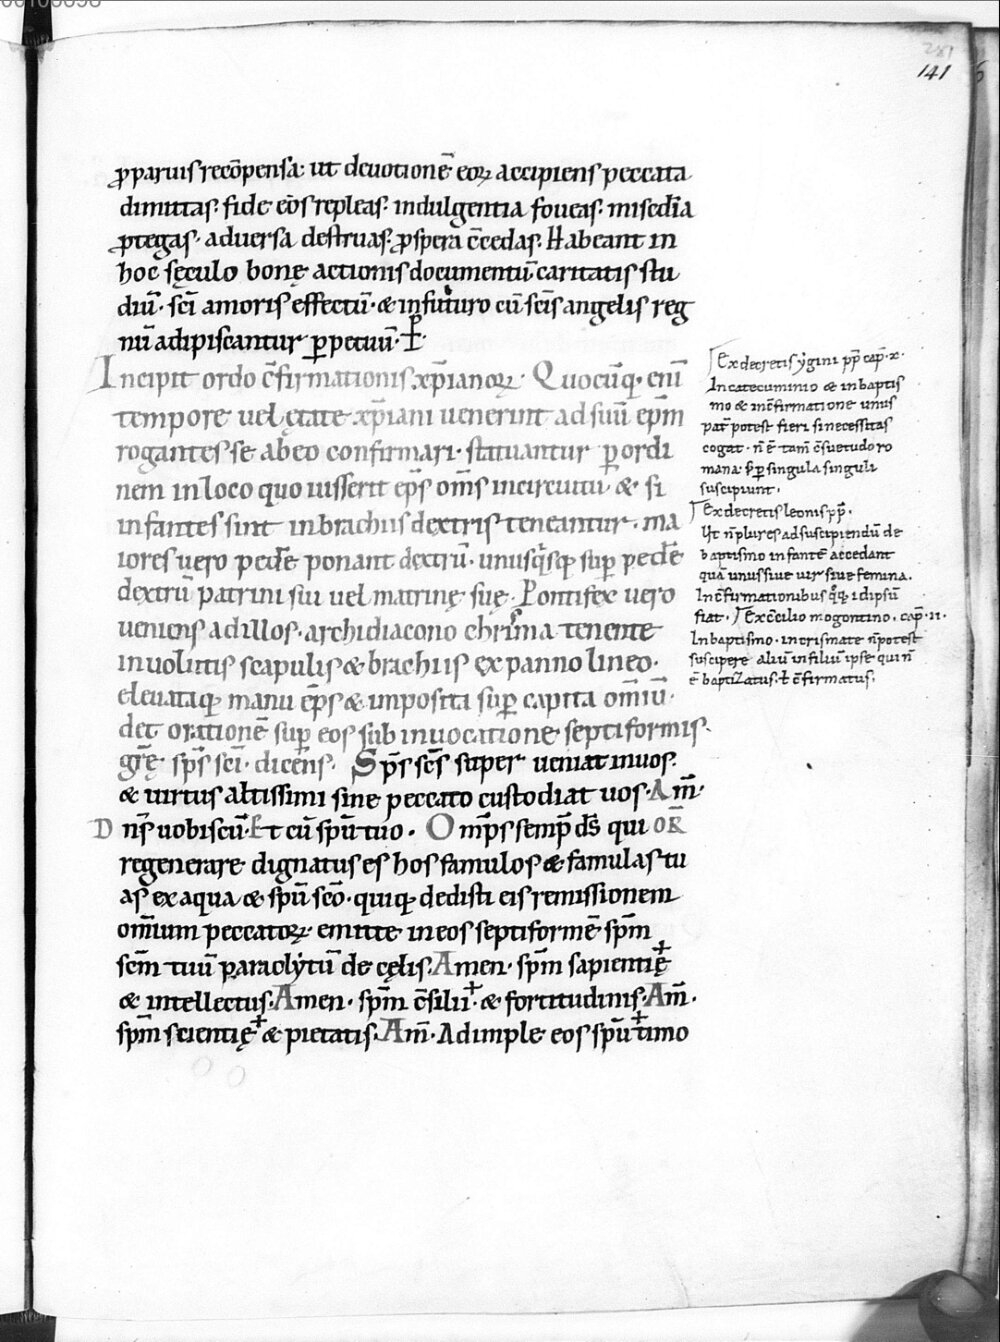 141
ꝓ paruis recōpensa: ut deuotionē eoꝝ accipiens peccata
dimittas. fide eos repleas. indulgentia foueas. misedia
ꝓtegas. aduersa destruas. ꝓspera c̄cedas. Habeant in
hoc sęculo bonę actionis documentū caritatis stu
diū. sc̄i amoris effectū. & infuturo cū sc̄is angelis reg
nū adipiscantur ꝑpetuū. P̱
Incipit ordo c̄firmationis xp̄ianoꝝ. Quocūq; eni
tempore uel ętate xp̄iani uenerint ad suū ep̄m
rogantes se ab eo confirmari. statuantur ꝑ ordi
nem in loco quo iusserit ep̄s om̄s incircuitu. & si
infantes sint inbrachiis dextris teneantur. ma
iores uero pedē ponant dextrū. unusq̇sq; suꝑ pedē
dextrū patrini sui uel matrinę suę. Pontifex uero
ueniens ad illos. archidiacono chrisma tenente
inuolutis scapulis & brachiis ex panno lineo.
eleuataq; manu ep̄s & inposita suꝑ capita om̄iū.
det orationē suꝑ eos sub inuocatione septiformis.
gr̄ę sp̄s sc̄i. dicens. Sp̄s sc̄s super ueniat in uos.
& uirtus altissimi sine peccato custodiat uos. Am̄.
Dn̄s uobiscū. Et cū sp̄u tuo. Omp̄s semp̄ ds̄ qui OR̄
regenerare dignatus es hos famulos & famulas tu
as ex aqua & sp̄u sc̄o. quiq; dedisti eis remissionem
omium peccatoꝝ. emitte in eos septiformē sp̄m
sc̄m tuū paraclytū de cęlis. Amen. sp̄m sapientię +
& intellectus. Amen. sp̄m c̄silii + & fortitudinis. Am̄.
sp̄m scientię + & pietatis. Am̄. Adimple eos sp̄u + timo
Ex decretis ygini pp̄ cap. x.
In catecuminio & in baptis
mo & inc̄firmatione unus
pat̄ potest fieri si necessitas
cogat. n̄ ē tam̄ c̄suetudo ro
mana. s; ꝑ singula singuli
suscipiunt.
Ex decretis leonis pp̄.
Ut n̄ plures ad suscipiendū de
baptismo infantē accedant
quā unus siue uir siue femina.
In c̄firmationibus q̄q; idipsū
fiat. Ex c̄cilio mogontino. cap. ii.
In baptismo. in crismate n̄ potest
suscipere aliū in filiū ipse qui n̄
ē baptizatus. ł c̄firmatus.